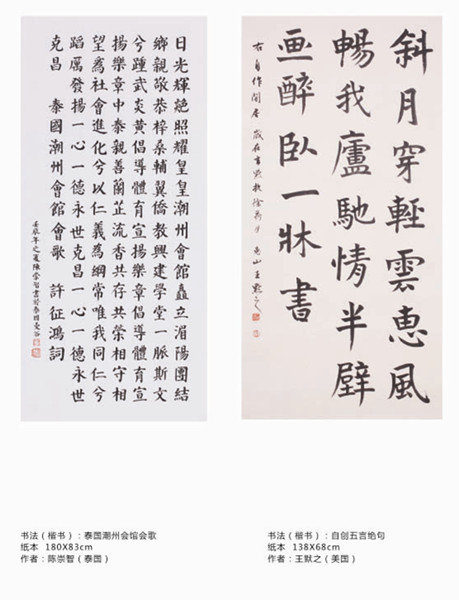 日光輝艶照耀皇皇潮州會館矗立湄陽團結
鄉親敬恭梓桑輔翼僑教興建學堂一脈斯文
兮踵武炎黄倡導體育宣揚樂章倡導體育宣
揚樂章中泰親善蘭芷流香共存共榮相守相
望爲社會進化兮以仁義爲綱常唯我同仁兮
蹈厲發揚一心一德永世克昌一心一德永世
克昌 泰國潮州會館會歌 許征鴻詞
壬辰年之夏陳崇智書於泰國曼谷
斜月穿輕雲恵風
暢我廬馳情半壁
画醉臥一牀書
右自作 王默之
书法（楷书）：泰国潮州会馆会歌
纸本 180X83cm
作者：陈崇智（泰国）
书法（楷书）：自创五言绝句
纸本 138X68cm
作者：王默之（美国）